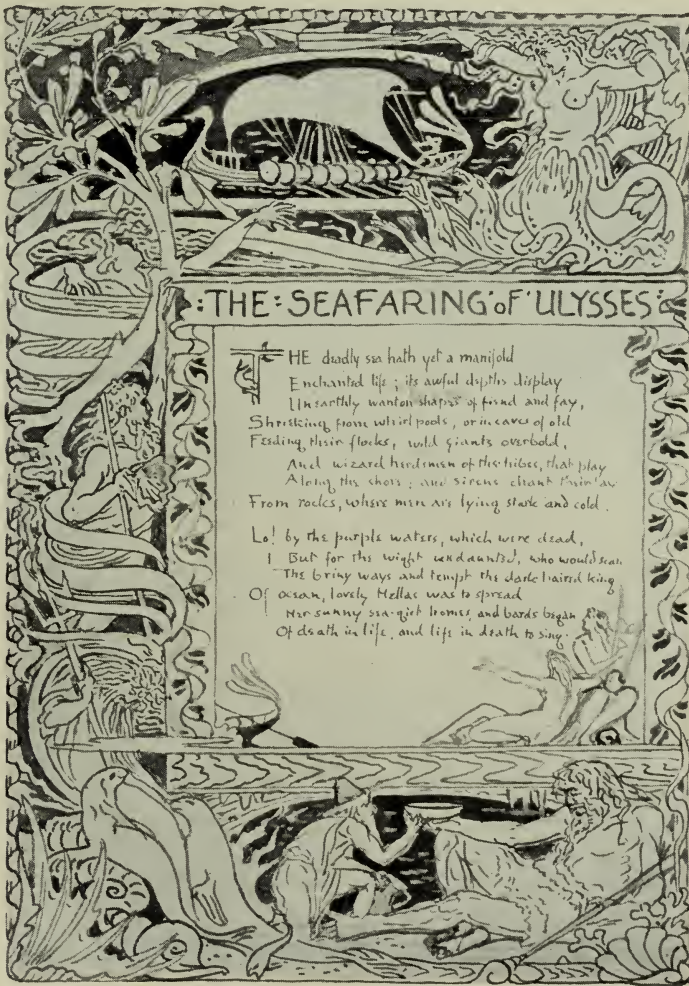 :THE:SEAFARING of ULYSSES:
THE deadly sea hath yet a manifold
Enchanted life; its awful depths display
Unearthly wanton shapes of fiend and fay,
Shrieking from whirlpools, or in caves of old
Feeding their flocks, wild giants overbold,
And wizard herdsmen of the tribes, that play
Along the shore; and sirens chant their
From rocks, where men are lying stark and cold.
Lo! by the purple waters, which were dead,
But for the wight undaunted, who would
The briny ways and tempt the dark haired king
Of ocean, lovely Hellas was to spread
Her sunny sea-girt homes, and bards began
Of death in life, and life in death to sing.